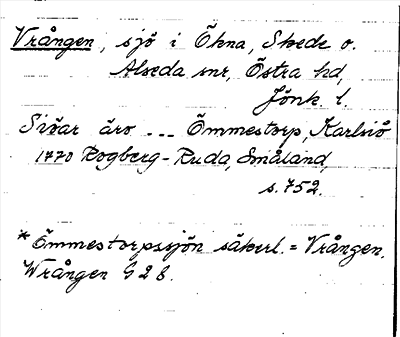 Vrången, sjö i Ökna, Skede o.
Alseda snr, Östra hd,
Jönk. l.
Siöar äro --- Ömmestorp, Karlsiö
1770 Rogberg-Ruda, Småland,
s. 752.
* Ömmestorpssjön säkerl. = Vrången.
Wrången G 28.